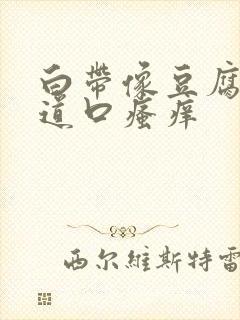 白帶像豆腐
道口瘙痒
西尔維斯特雷